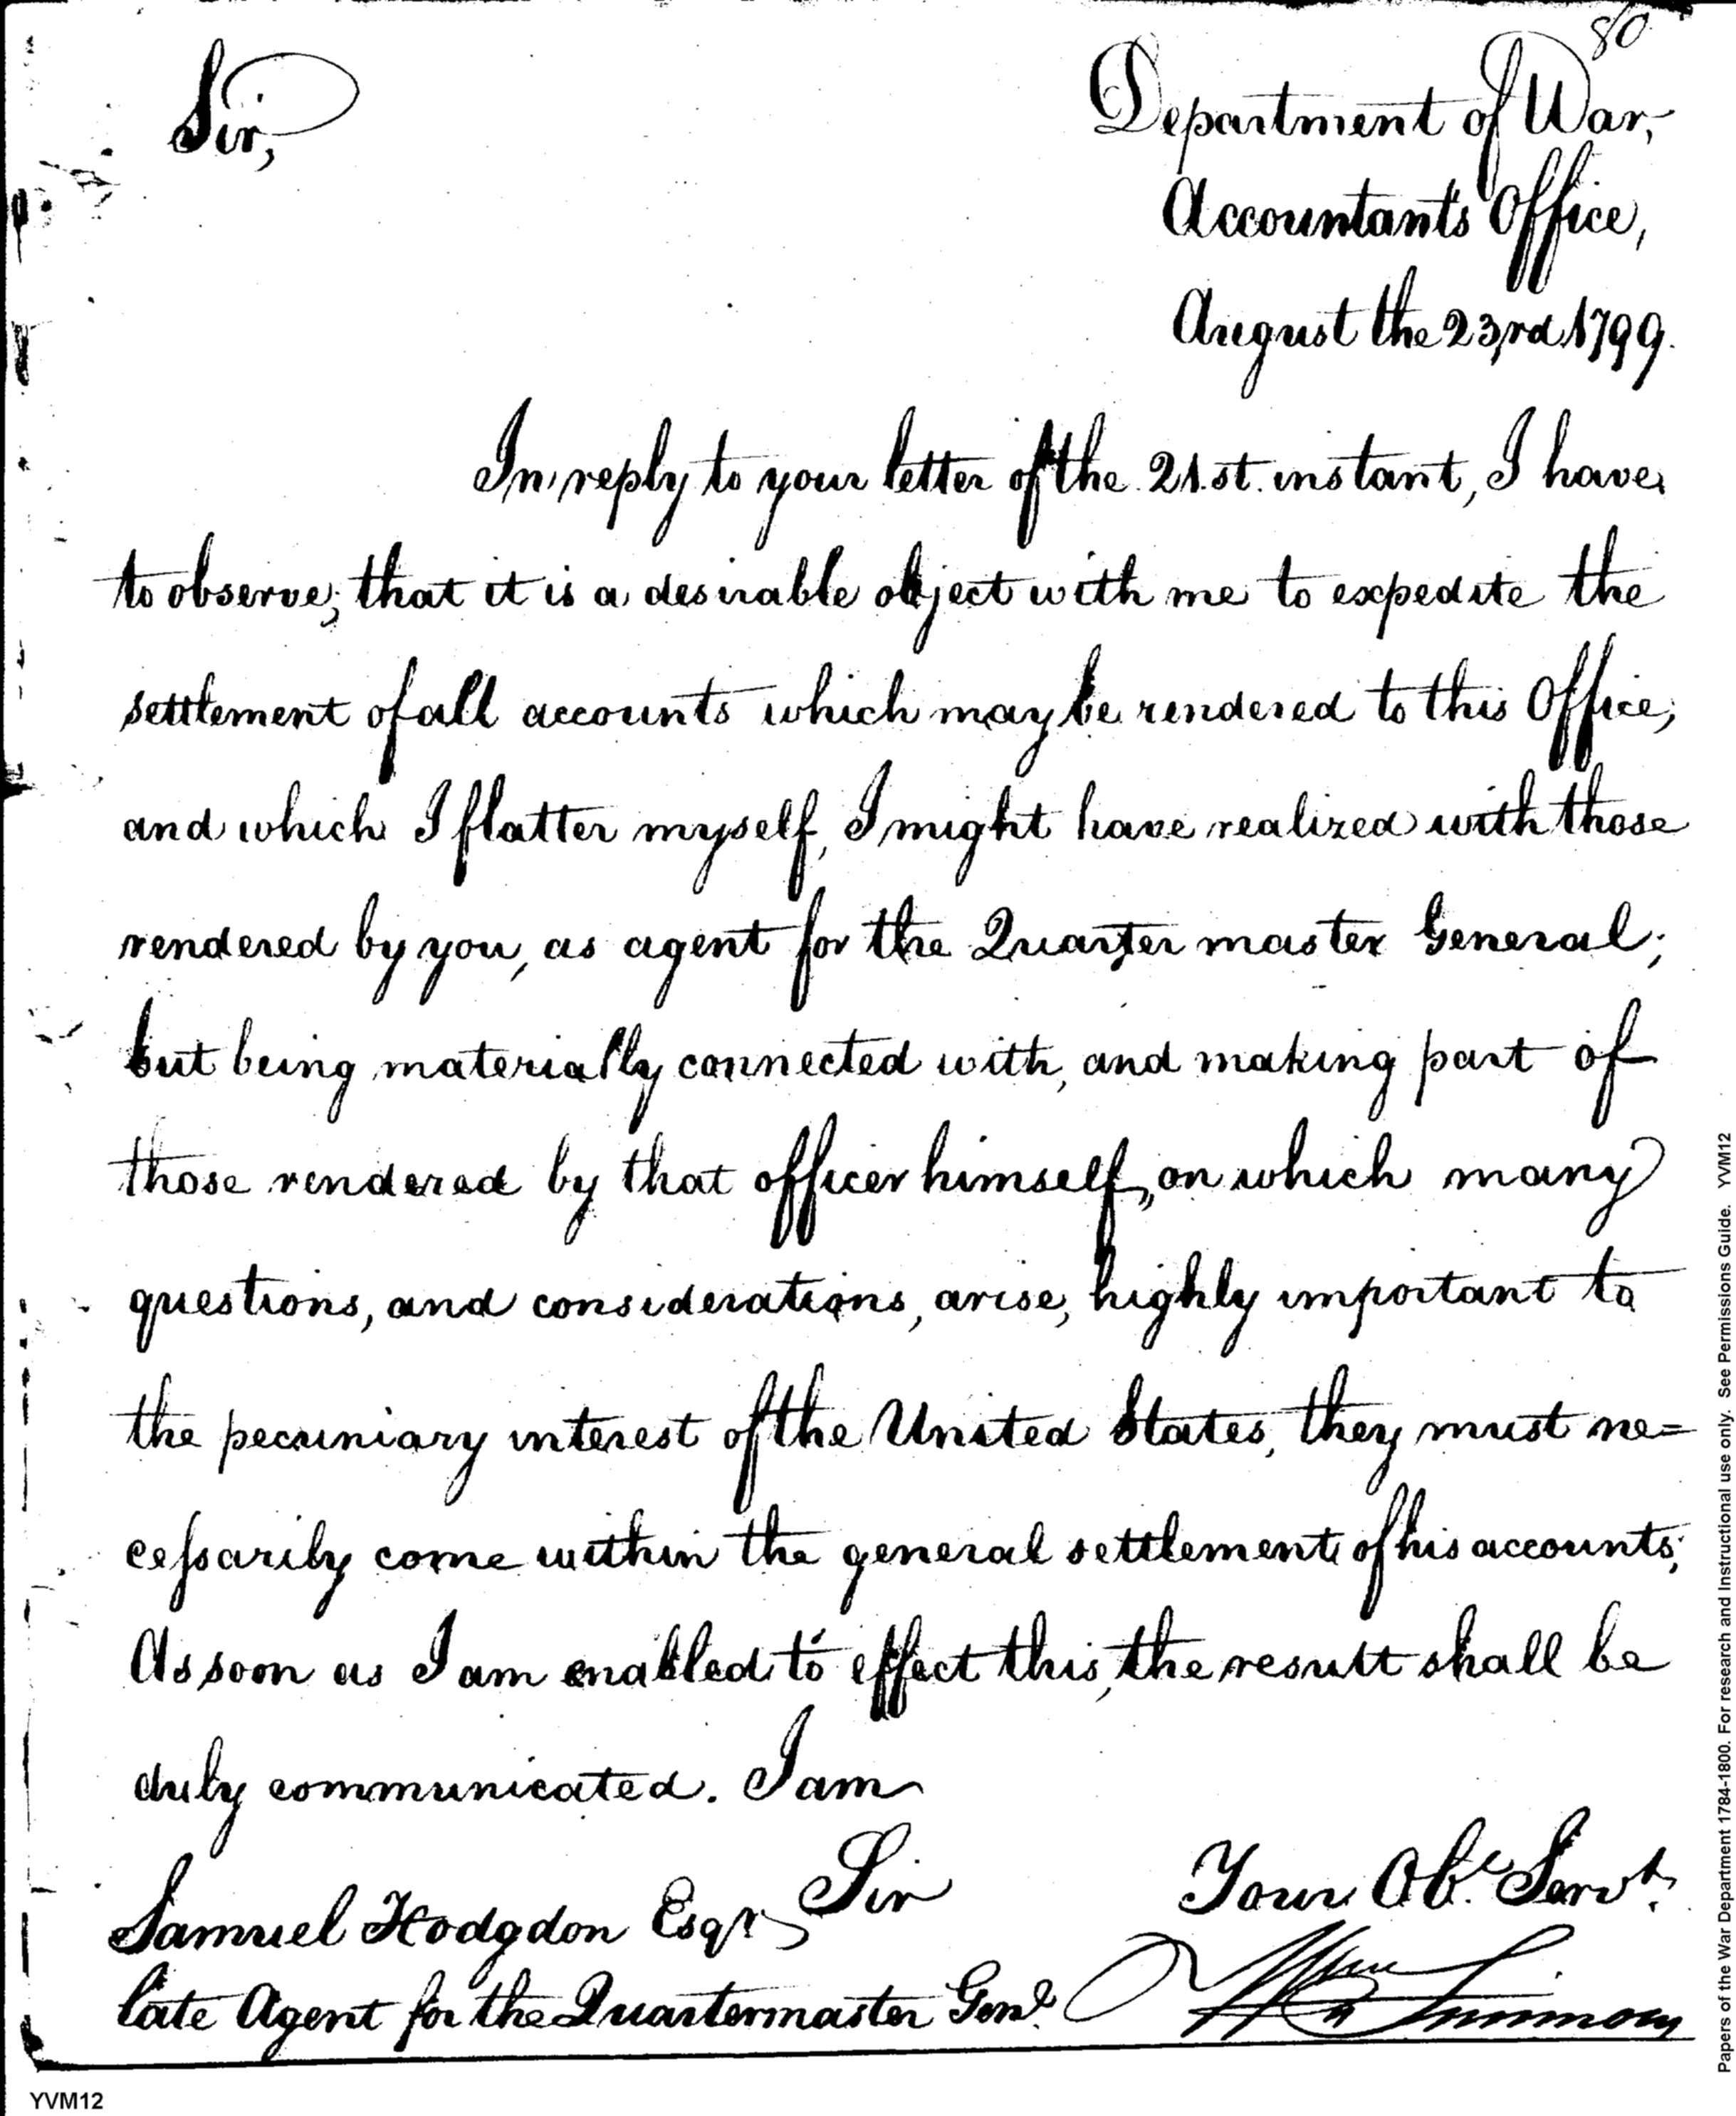 80
Sir,
Department of War,
Accountants Office,
August the 23rd 1799.
In reply to your letter of the 21.st. instant, I have
to observe; that it is a desirable object with me to expedite the
settlement of all accounts which may be rendered to this Office;
and which I flatter myself, I might have realized with those
rendered by you, as agent for the Quarter master General;
but being materially connected with, and making part of
those rendered by that officer himself, on which many
questions, and considerations, arise, highly important to
the pecuniary interest of the United States, they must ne=
cessarily come within the general settlement of his accounts;
As soon as I am enabled to effect this, the result shall be
duly communicated. I am
Sir
Your Obt. Servt.
Wm Simmons
Samuel Hodgdon Esqr
late Agent for the Quartermaster Genl.
Papers of the War Department 1784-1800. For research and Instructional use only. See Permissions Guide. YVM12
YVM12